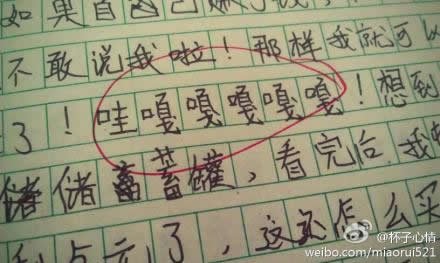 如果自己
不敢说我啦！那样我就可以
了！哇嘎嘎嘎嘎嘎！想到
储蓄罐，看完后我
了，这怎么买
@杯子心情
weibo.com/miaorui521